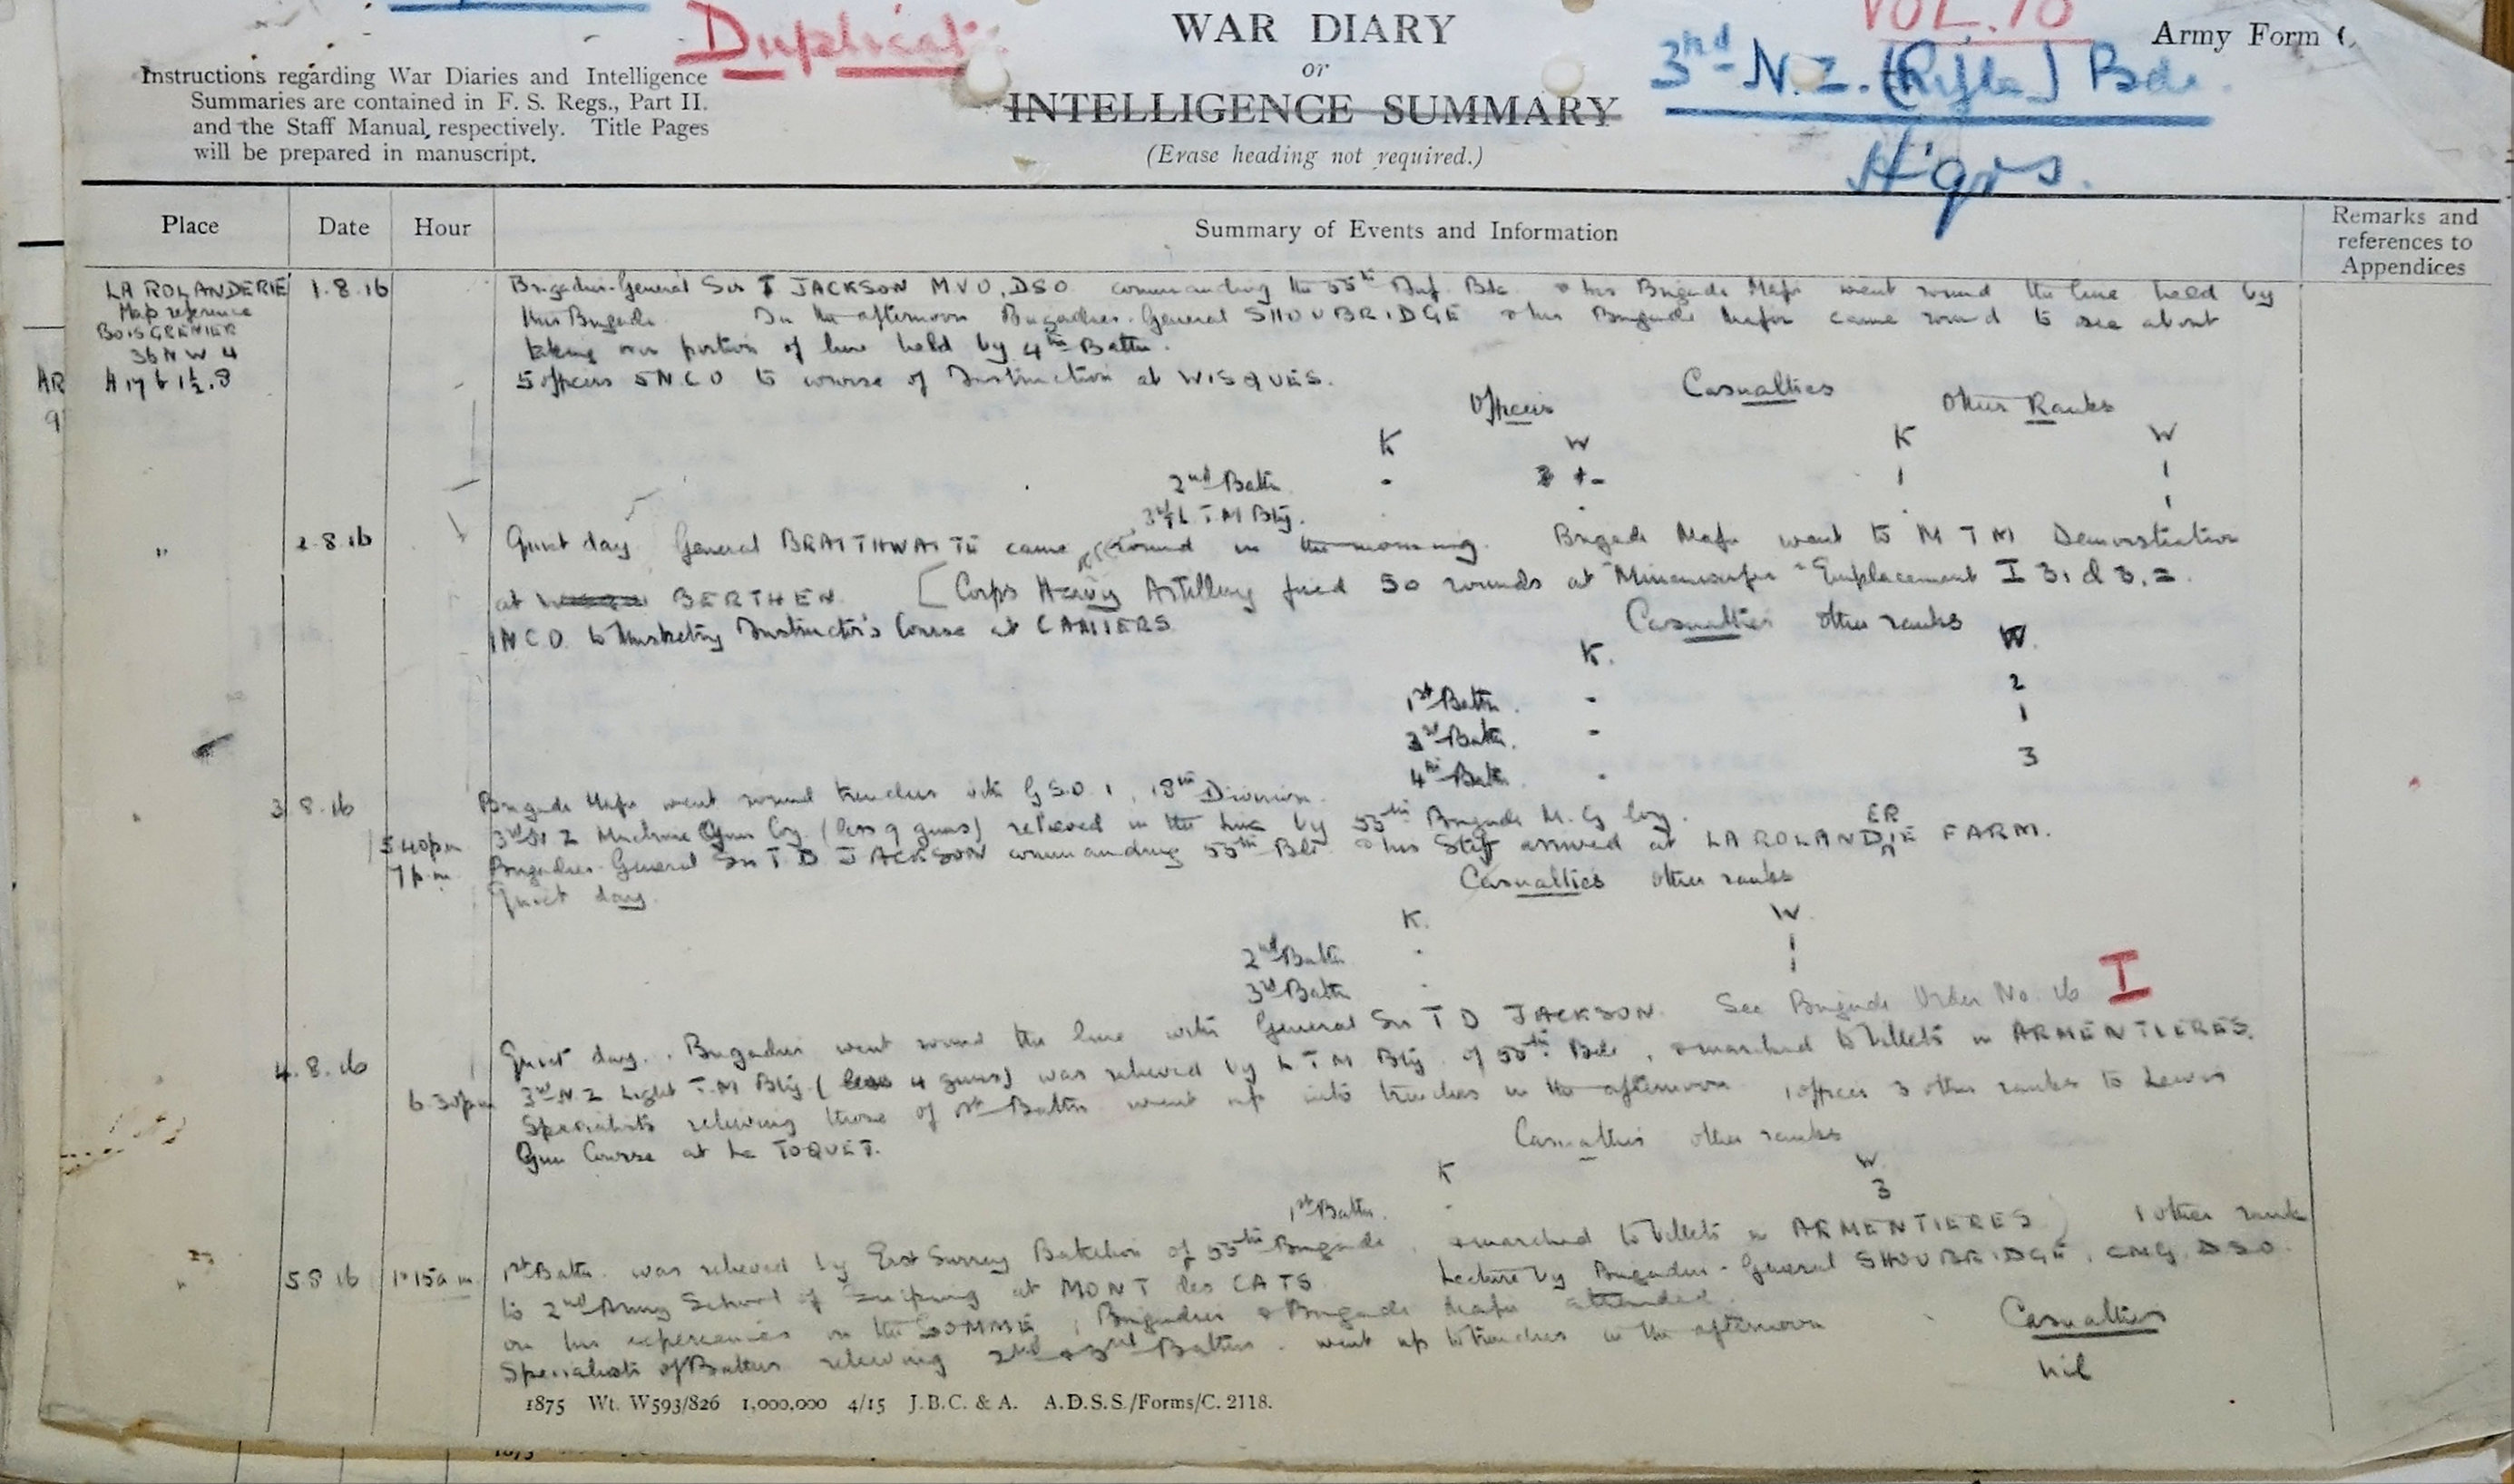 Duplicat
WAR DIARY
or
INTELLIGENCE SUMMARY
(Erase heading not required.)
VOL. 10
Army Form C
3rd N.Z. (Rifle) Bde.
Hqrs.
Instructions regarding War Diaries and Intelligence
Summaries are contained in F. S. Regs., Part II.
and the Staff Manual, respectively. Title Pages
will be prepared in manuscript.
Place Date Hour Summary of Events and Information Remarks and references to Appendices
LA ROLANDERIE 1.8.16 Brigadier-General Sir T JACKSON MVO, DSO commanding the 55th Inf. Bde & his Brigade Major went round the line held by
Map reference this Brigade. In the afternoon Brigadier-General SHOUBRIDGE & his Brigade Major came round to see about
BOIS GRENIER
36 N W 4 taking over portion of line held by 4th Battn.
H 17 b 1½.8 5 officers 5 NCO to course of Instruction at WISQUES.
Casualties
Officers Other Ranks
K W K W
2nd Battn - - 1 1
3rd L T M Bty. 1
" 2.8.16 Quiet day. General BRAITHWAITE came round in the morning. Brigade Major went to M T M Demonstration
at BERTHEN [Corps Heavy Artillery fired 50 rounds at "Minenwerfer" Emplacement I 31 d 3.2.
1 NCO to Musketry Instructor's Course at CAMIERS
Casualties other ranks
K. W.
1st Battn. - 2
3rd Battn. - 1
4th Battn - 3
3.8.16 Brigade Major went round trenches with G.S.O. 1, 18th Division.
5 40pm 3rd N Z Machine Gun Coy. (less 9 guns) relieved in the line by 55th Brigade M. G Coy.
7 p.m. Brigadier-General Sir T D JACKSON commanding 55th Bde & his Staff arrived at LA ROLANDERIE FARM.
Quiet day.
Casualties other ranks
K. W.
2nd Battn - 1
3rd Battn - 1
4.8.16 Quiet day. Brigadier went round the line with General Sir T D JACKSON. See Brigade Order No. 16 I
6 30pm 3rd N.Z Light T.M Bty. (less 4 guns) was relieved by L T M Bty. of 55th Bde, & marched to billets in ARMENTIERES.
Specialists relieving those of 1st Battn went up into trenches in the afternoon 1 officer 3 other ranks to Lewis
Gun Course at Le TOQUET.
Casualties other ranks
K W
1st Battn. - 3
" 5 8 16 1.15a m 1st Battn. was relieved by East Surrey Battalion of 55th Brigade, & marched to billets in ARMENTIERES) 1 other rank
to 2nd Army School of Sniping at MONT des CATS Lecture by Brigadier-General SHOUBRIDGE, CMG, DSO.
on his experiences on the SOMME, Brigadier & Brigade Major attended.
Specialists of Battns relieving 2nd & 3rd Battns. went up to trenches in the afternoon
Casualties
nil
1875 Wt. W593/826 1,000,000 4/15 J.B.C. & A. A.D.S.S./Forms/C. 2118.